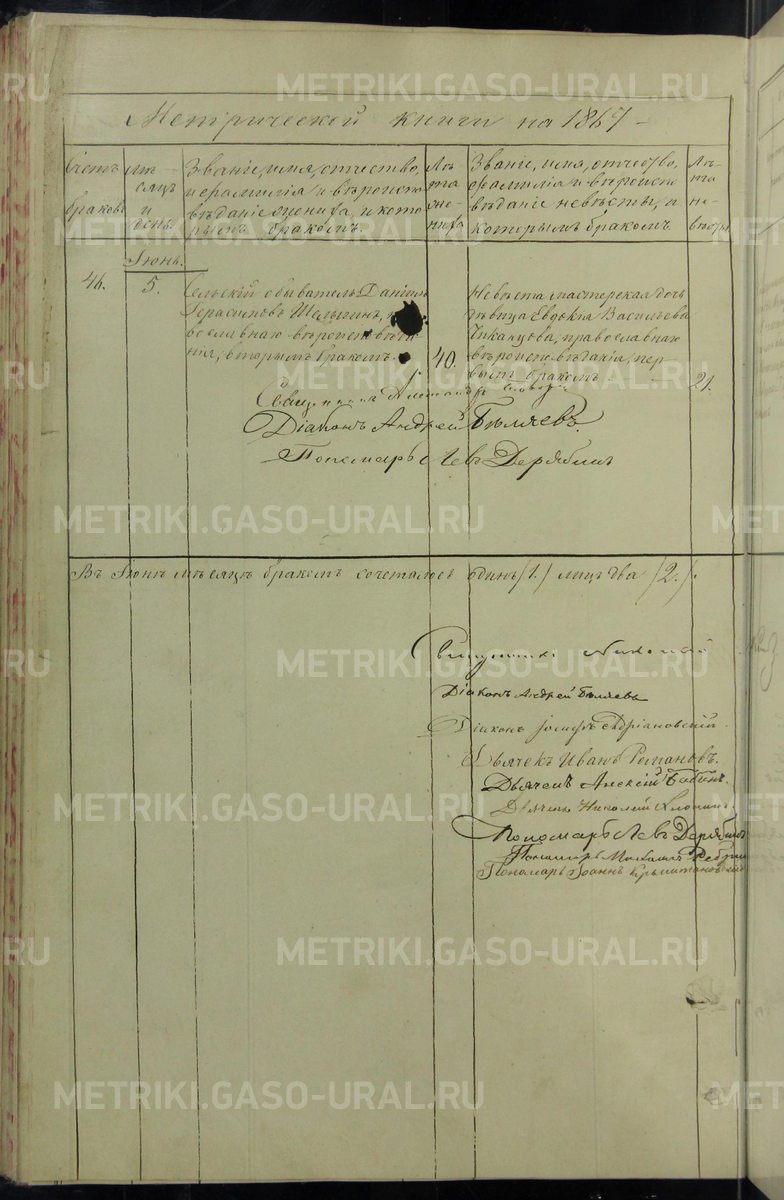 Метрической книги на 1867
Счетъ браковъ
Мѣсяцъ и день.
Званіе, имя, отчество,
и фамилія и вѣроиспо
вѣданіе жениха, и кото
рымъ бракомъ.
Лѣта жениха
Званіе, имя, отчество,
фамилія и вѣроиспо
вѣданіе невѣсты, и
которымъ бракомъ
Лѣта невѣсты
Іюнь.
46.
5.
Сельскій обыватель Даніилъ
Герасимовъ Шелыгинъ,
вославнаго вѣроисповѣда
нія, вторымъ бракомъ.
40.
Невѣста мастерская дочь
дѣвица Евдокія Васильева
православнаго
вѣроисповѣданія, пер
вымъ бракомъ
21.
Священникъ
Діаконъ Андрей Бѣляевъ.
Пономарь Левъ Дерябинъ
Въ Іюнѣ мѣсяцѣ бракомъ сочеталось одинъ /1./ лицъ два /2./.
Николай
Діаконъ Андрей Бѣляевъ
Діаконъ Іосифъ Адріановскій
Дьячекъ Иванъ Романовъ.
Дьячекъ Алексій Бабинъ.
Дьячекъ Николай
Пономарь Левъ Дерябинъ
Пономарь
Пономарь Іоаннъ
METRIKI.GASO-URAL.RU